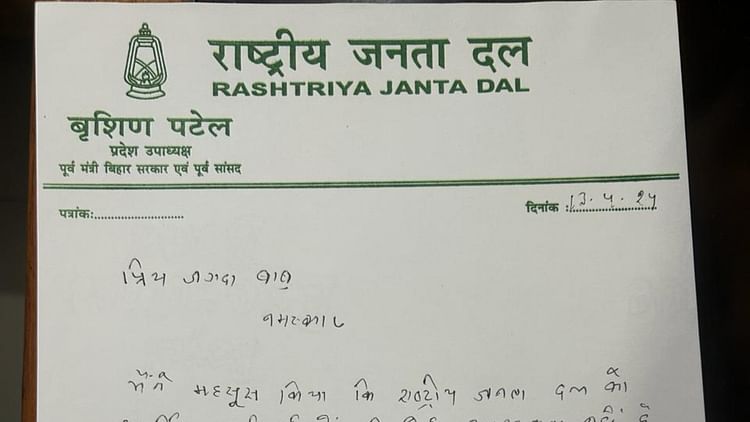 राष्ट्रीय जनता दल
RASHTRIYA JANTA DAL
बृशिण पटेल
प्रदेश उपाध्यक्ष
पूर्व मंत्री बिहार सरकार एवं पूर्व सांसद
पत्रांक:............................
दिनांक :13.4.24
प्रिय जगदा बाबु
नमस्कार
मैंने महसूस किया कि राष्ट्रीय जनता दल को